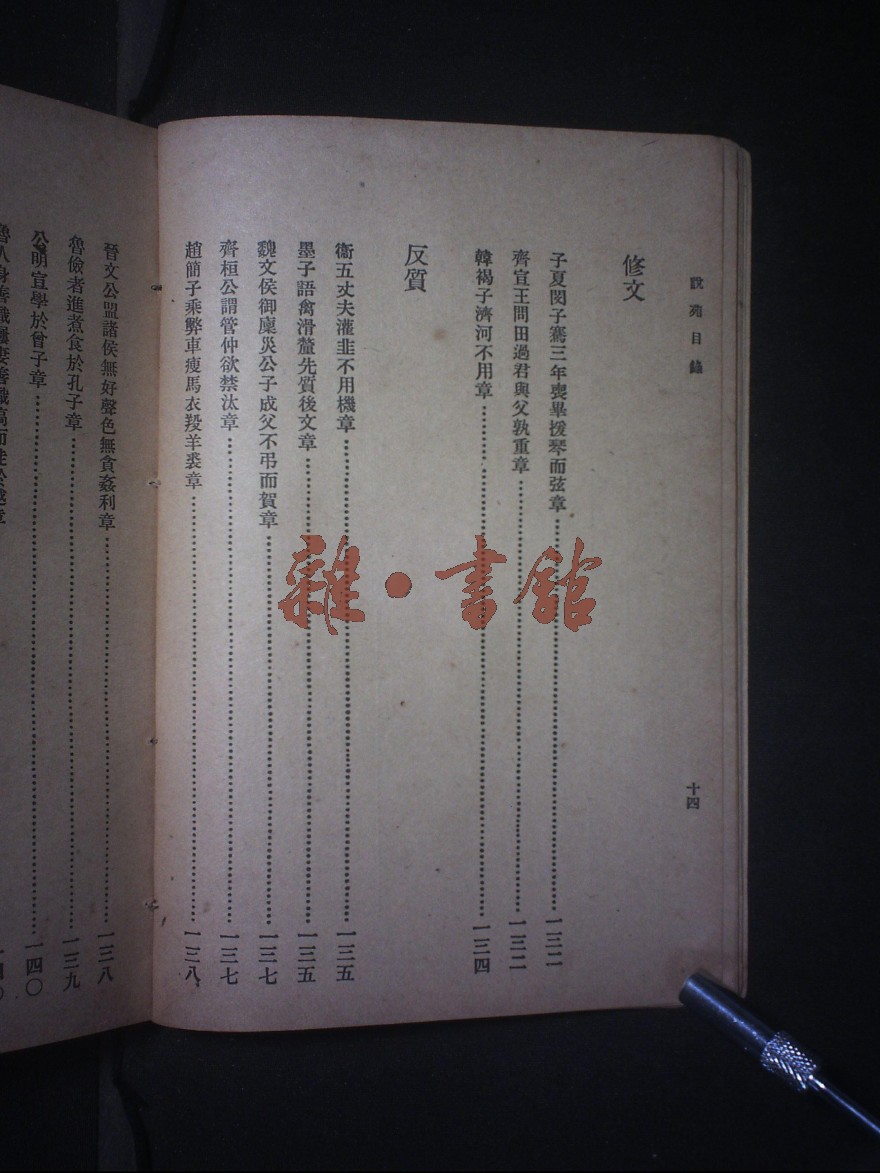 說苑目錄
十四
修文
子夏閔子騫三年喪畢援琴而弦章……一三二
齊宣王問田過君與父孰重章……一三二
韓褐子濟河不用章……一三四
反質
衞五丈夫灌韭不用機章……一三五
墨子語禽滑釐先質後文章……一三五
魏文侯御廩災公子成父不弔而賀章……一三七
齊桓公謂管仲欲禁汰章……一三七
趙簡子乘弊車瘦馬衣羖羊裘章……一三八
晉文公盟諸侯無好聲色無貪姦利章……一三八
魯儉者進煮食於孔子章……一三九
公明宣學於曾子章……一四〇
雜·書館